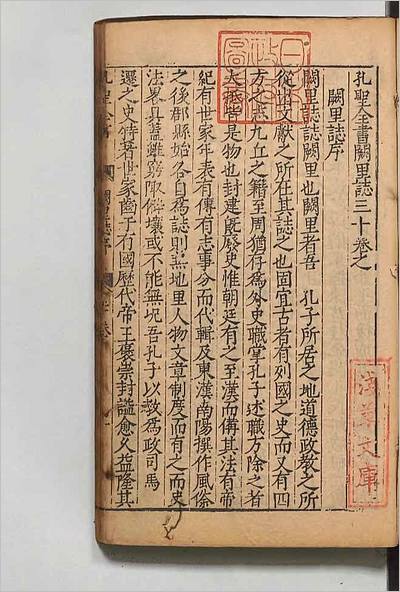 孔聖全書闕里誌三十卷之
闕里誌序
闕里誌誌闕里也闕里者吾 孔子所居之地道德政教之所
從出文獻之所在其誌之也固宜古者有列國之史而又有四
方之志九丘之籍至周猶存爲外史職掌孔子述職方除之者
大抵皆是物也封建旣廢史惟朝廷有之至漢而傳其法有帝
紀有世家年表有傳有志事分而代輯及東漢南陽撰作風俗
之後郡縣始各自爲誌則無地里人物文章制度而有之而史
法畧具蓋雖窮陬僻壤或不能無况吾孔子以教爲政司馬
遷之史特著世家齒于有國歷代帝王褒崇封謚愈久益隆其
淺草文庫